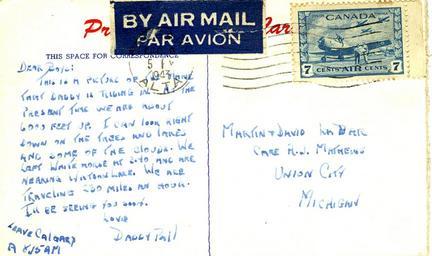 BY AIR MAIL
PAR AVION
CANADA
7 CENTS AIR CENTS 7
THIS SPACE FOR CORRESPONDENCE
DEAR BOYS:
THIS IS A PICTURE OF A PLANE
THAT DADDY IS RIDING IN AT THE
PRESENT TIME WE ARE ABOUT
6000 FEET UP. I CAN LOOK RIGHT
DOWN ON THE TREES AND LAKES
AND SOME OF THE CLOUDS. WE
LEFT WHITE HORSE AT 2:40 AND ARE
NEARING WATSON LAKE. WE ARE
TRAVELING 200 MILES AN HOUR.
I'LL BE SEEING YOU SOON.
LOVE
DADDY
LEAVE CALGARY
A 8:15 AM
MARTIN + DAVID
CARE A.J. MATHEWS
UNION CITY
MICHIGAN